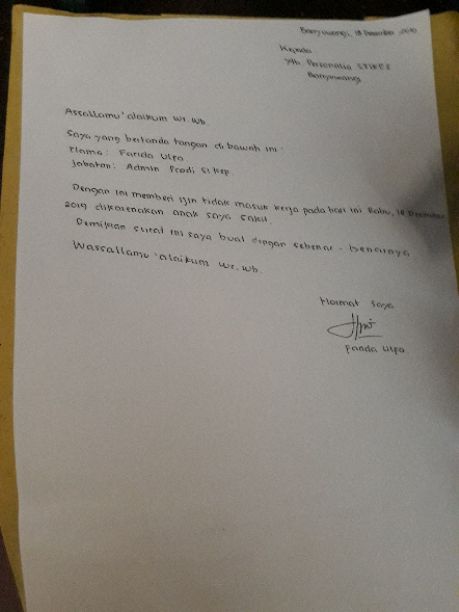 Banyuwangi, 18 Desember 2019
Kepada
Yth Personalia STIKES
Banyuwangi
Assallamu'alaikum wr. wb.
Saya yang bertanda tangan di bawah ini :
Nama : Farida Ulfa
Jabatan : Admin Prodi S1 Kep.
Dengan ini memberi ijin tidak masuk kerja pada hari ini Rabu, 18 Desember
2019 dikarenakan anak saya sakit.
Demikian surat ini saya buat dengan sebenar - benarnya
Wassallamu'alaikum wr. wb.
Hormat saya
Farida Ulfa